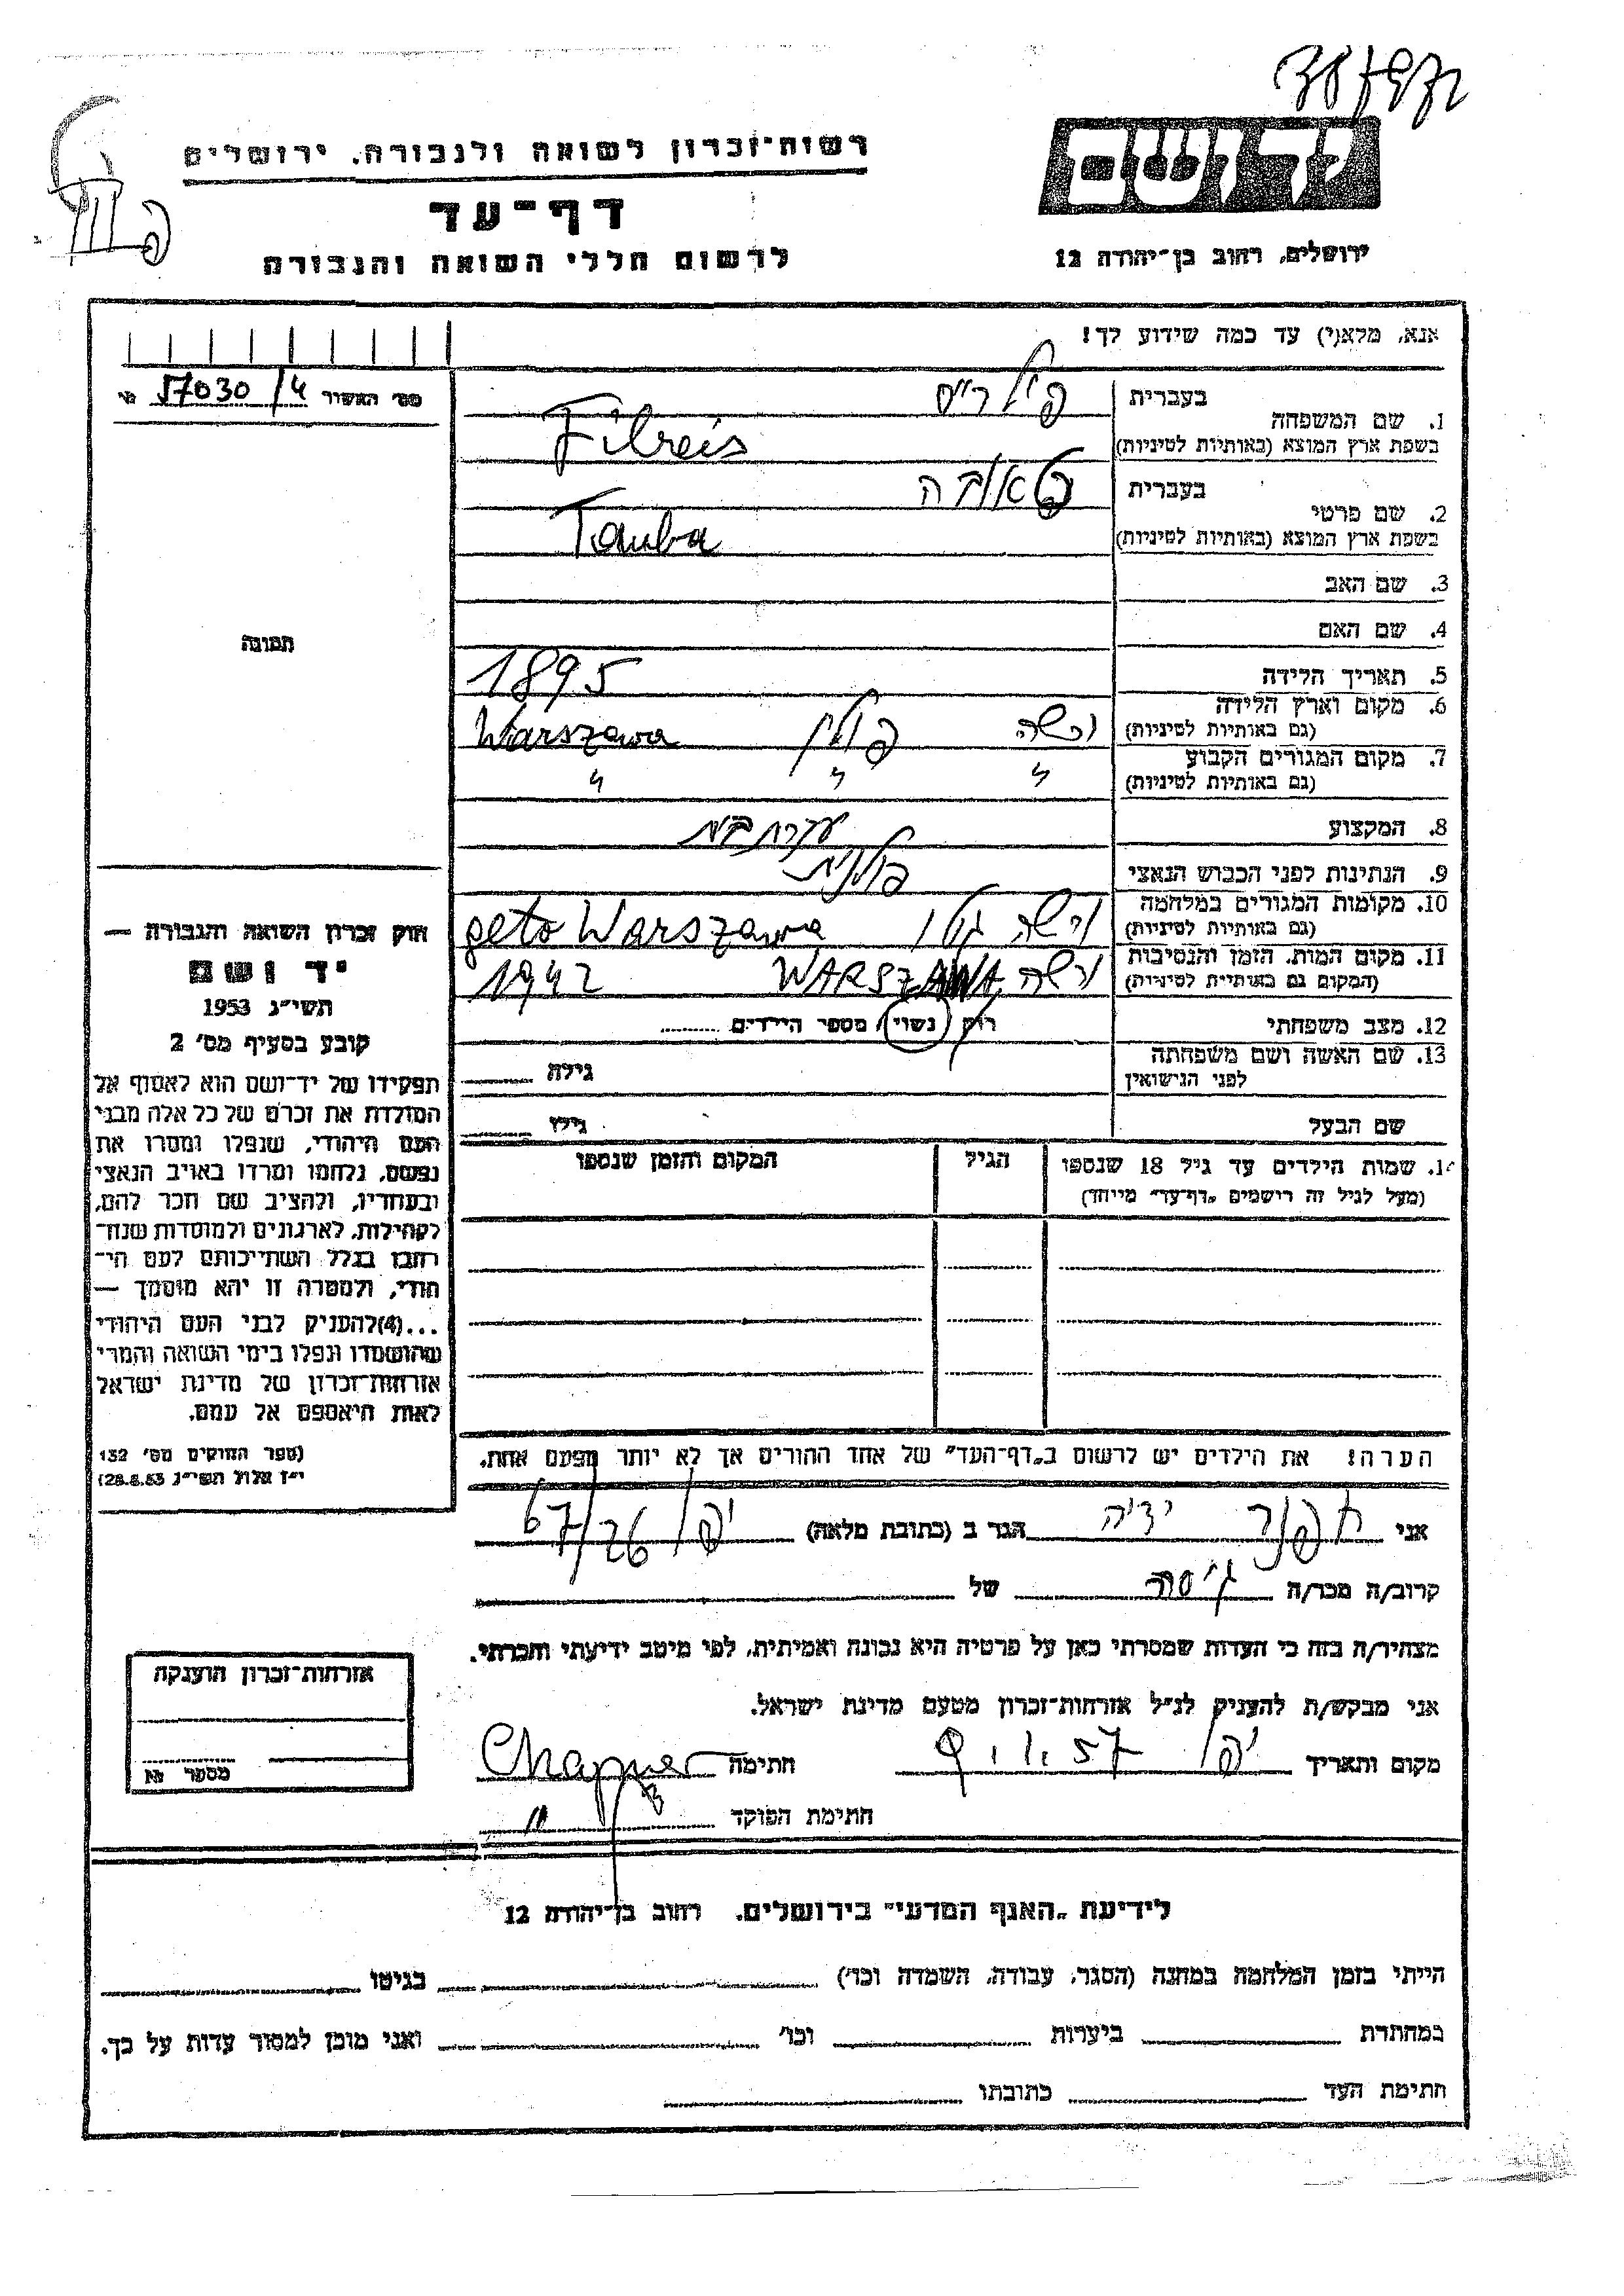 רשות־זכרון לשואה ולגבורה, ירושלים
יד ושם
דף־עד
לרשום חללי השואה והגבורה
ירושלים, רחוב בן־יהודה 12
אנא, מלא(י) עד כמה שידוע לך!
מס' האשור 57030/4
1. שם המשפחה בעברית פילרייס
בשפת ארץ המוצא (באותיות לטיניות) Filreis
2. שם פרטי בעברית טאובה
בשפת ארץ המוצא (באותיות לטיניות) Tauba
3. שם האב
4. שם האם
5. תאריך הלידה 1895
6. מקום וארץ הלידה (גם באותיות לטיניות) ורשה פולין Warszawa
7. מקום המגורים הקבוע (גם באותיות לטיניות) " " "
8. המקצוע עקרת בית
9. הנתינות לפני הכבוש הנאצי פולנית
10. מקומות המגורים במלחמה (גם באותיות לטיניות) ורשה גטו geto Warszawa
11. מקום המות, הזמן והנסיבות (המקום גם באותיות לטיניות) ורשה WARSZAWA 1942
12. מצב משפחתי רווק / נשוי / מספר הילדים
13. שם האשה ושם משפחתה לפני הנישואין גילה
שם הבעל גילו
14. שמות הילדים עד גיל 18 שנספו הגיל המקום והזמן שנספו
(מעל לגיל זה רושמים "דף־עד" מיוחד)
תמונה
חוק זכרון השואה והגבורה —
יד ושם
תשי"ג 1953
קובע בסעיף מס' 2
תפקידו של יד־ושם הוא לאסוף אל
המולדת את זכרם של כל אלה מבני
העם היהודי, שנפלו ומסרו את
נפשם, נלחמו ומרדו באויב הנאצי
ובעוזריו, ולהציב שם וזכר להם,
לקהילות, לארגונים ולמוסדות שנח־
רבו בגלל השתייכותם לעם הי־
הודי, ולמטרה זו יהא מוסמך —
...(4) להעניק לבני העם היהודי
שהושמדו ונפלו בימי השואה והמרי
אזרחות־זכרון של מדינת ישראל
לאות היאספם אל עמם.
(ספר החוקים מס' 132
י"ז אלול תשי"ג 28.8.53)
הערה! את הילדים יש לרשום ב"דף־העד" של אחד ההורים אך לא יותר מפעם אחת.
אני חפנר ידיה הגר ב (כתובת מלאה) יפו 67/26
קרוב/ה מכר/ה גיסה של
מצהיר/ה בזה כי העדות שמסרתי כאן על פרטיה היא נכונה ואמיתית, לפי מיטב ידיעתי והכרתי.
אני מבקש/ת להעניק לנ"ל אזרחות־זכרון מטעם מדינת ישראל.
מקום ותאריך יפו 9.1.57 חתימה Chapner
חתימת הפוקד
אזרחות־זכרון הוענקה
מספר
לידיעת "האגף המדעי" בירושלים, רחוב בן־יהודה 12
הייתי בזמן המלחמה במחנה (הסגר, עבודה, השמדה וכו') בגיטו
במחתרת ביערות וכו' ואני מוכן למסור עדות על כך.
חתימת העד כתובתו